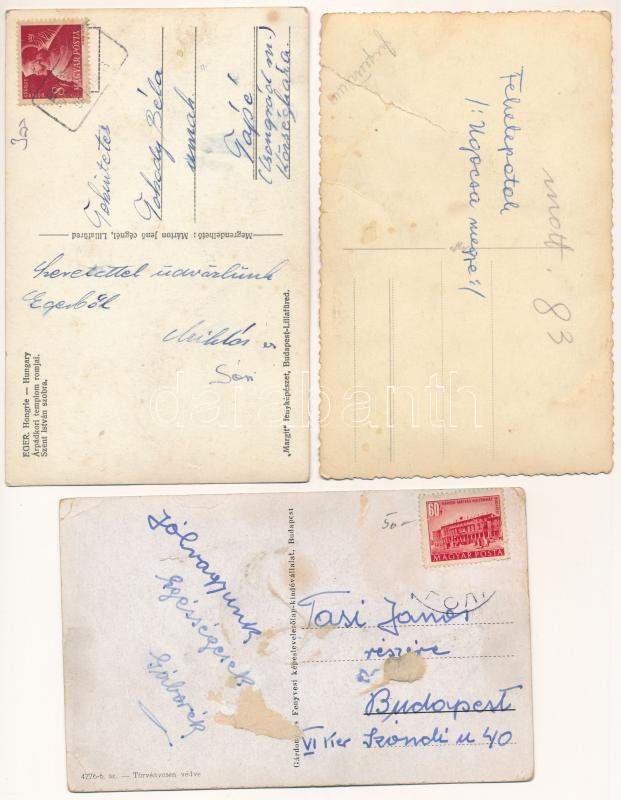 MAGYAR POSTA
Tekintetes
Tokody Béla
urnak
Tápé
(Csongrád m.)
Községháza.
Megrendelhető: Márton Jenő cégnél, Lillafüred
Szeretettel üdvözlünk
Egerből
Miklós
EGER. Hongrie — Hungary
Árpádkori templom romjai.
Szent István szobra.
„Margit" fényképészet, Budapest-Lillafüred.
Feketepatak
/: Ugocsa megye :/
83
darabanth
Jólvagyunk
Egészségesek
Gáborék
4776-6. sz. — Törvényesen védve
Gárdonyi és Fenyvesi képeslevelezőlap-kiadóvállalat, Budapest
60
MAGYAR POSTA
50
Tasi János
részére
Budapest
VI ker Szondi u 40